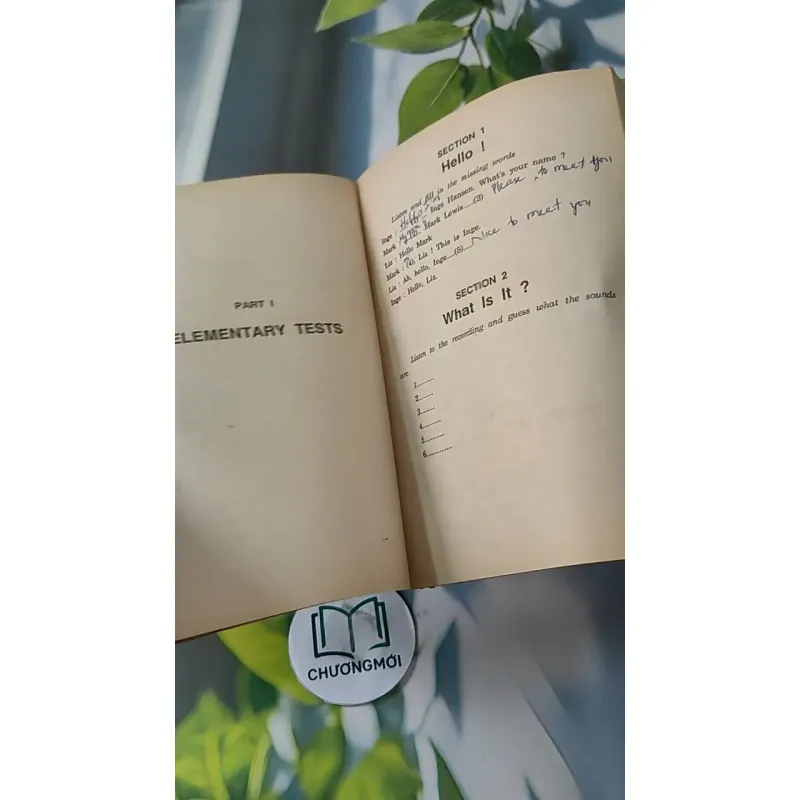 PART 1
ELEMENTARY TESTS
SECTION 1
Hello !
Listen and fill in the missing words
Inge : Hello I'm Inge Hansen. What's your name ?
Mark : Mark Lewis (3) Please to meet you
Liz : Hello Mark
Mark : Liz ! This is Inge.
Liz : Ah, hello, Inge (5) Nice to meet you
Inge : Hello, Liz
SECTION 2
What Is It ?
Listen to the recording and guess what the sounds
are
1........
2........
3........
4........
5........
6........
CHƯƠNGMỚI